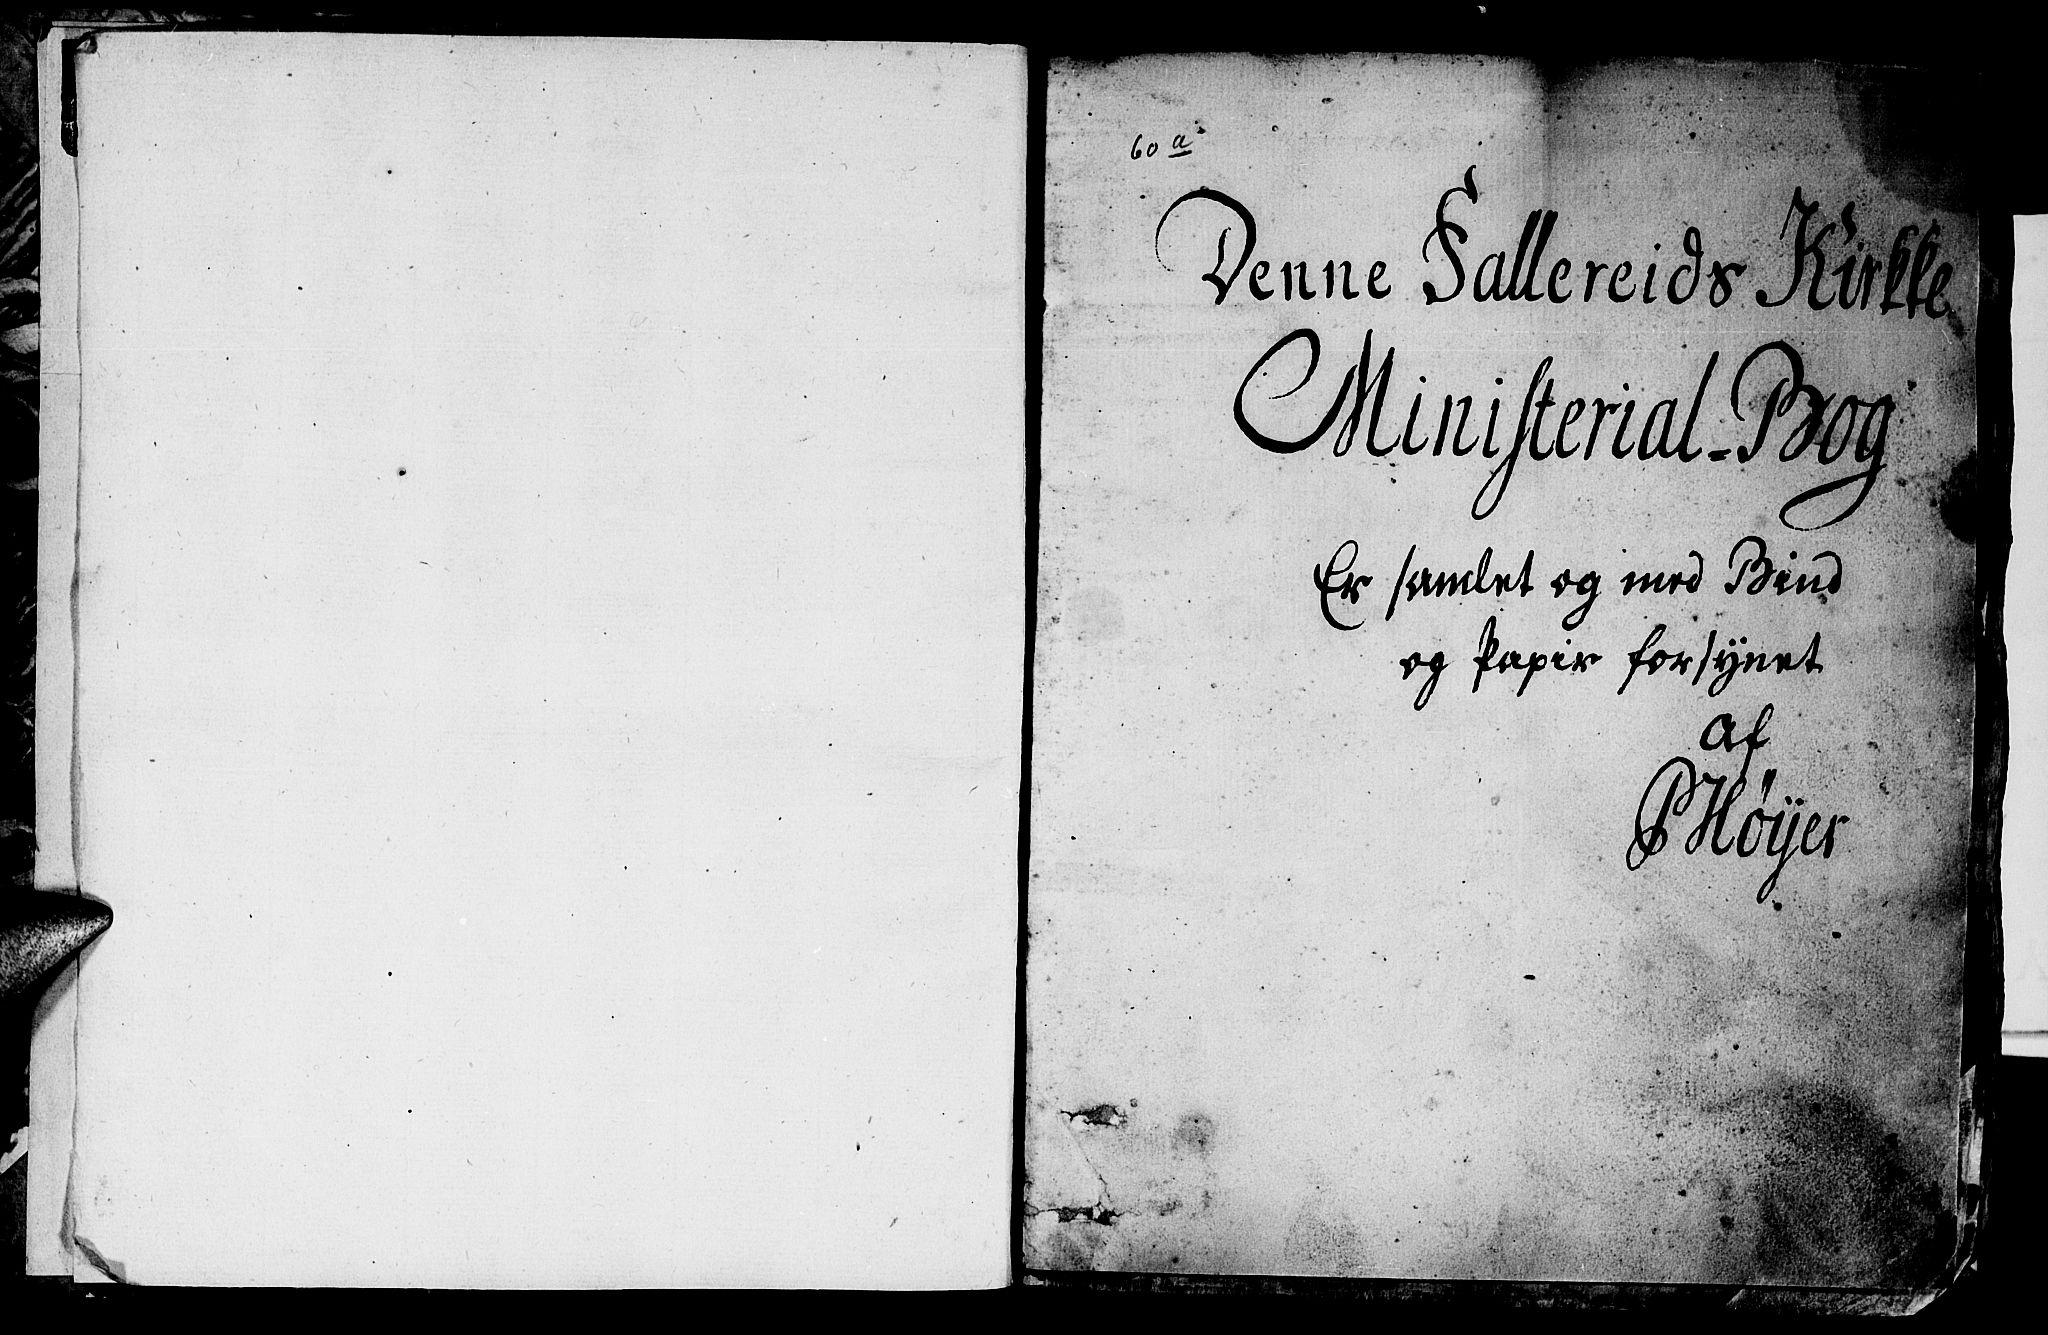 60 a
Denne Sallereids Kirkke
Ministerial-Bog
Er samlet og med Bind
og Papir forsÿnet
af
PHøÿer